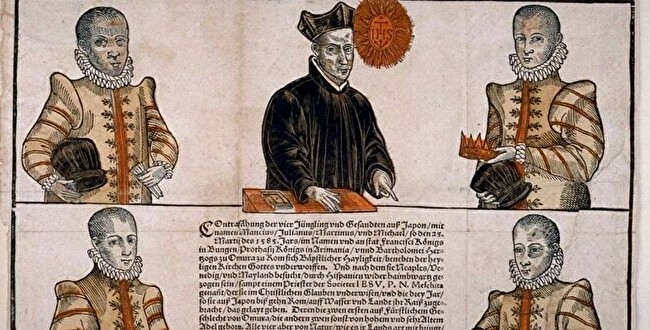 IHS
COntrafähung der vier Jüngling vnd Gesandten auß Japon/mit
namen Mancius/Julianus/Martinus/vnd Michael/so den 23.
Martij des 1585. Jars/im Namen vnd an stat Francisci Königs
in Bungen/Prothasij Königs in Arimania/vnnd Bartholomei Her-
zogs zu Omura zu Rom sich Bäpstlicher Hayligkeit/beneben der hey-
ligen Kirchen Gottes vnderworffen. Vnd nach dem sie Neaples/Ve-
nedig/vnd Mayland besucht/durch Hispanien wider haimbwartz ge-
zogen sein/sampt einem Priester der Societet IESV, P. N. Meschita
genandt/die sie im Christlichen Glauben vnderwisen/vnd die drey Jar/
so sie auß Japon biß gehn Rom/auff Wasser vnd Lande jhr Raiß zuge-
bracht/das gelayt geben. Deren die zwen ersten auß Fürstlichem Ge-
schlecht von Omura/die andern zwen sonst von hohem vnd sehr Altem
Adel geborn. Alle vier aber von Natur/wie es jr Lands art mit bringt/